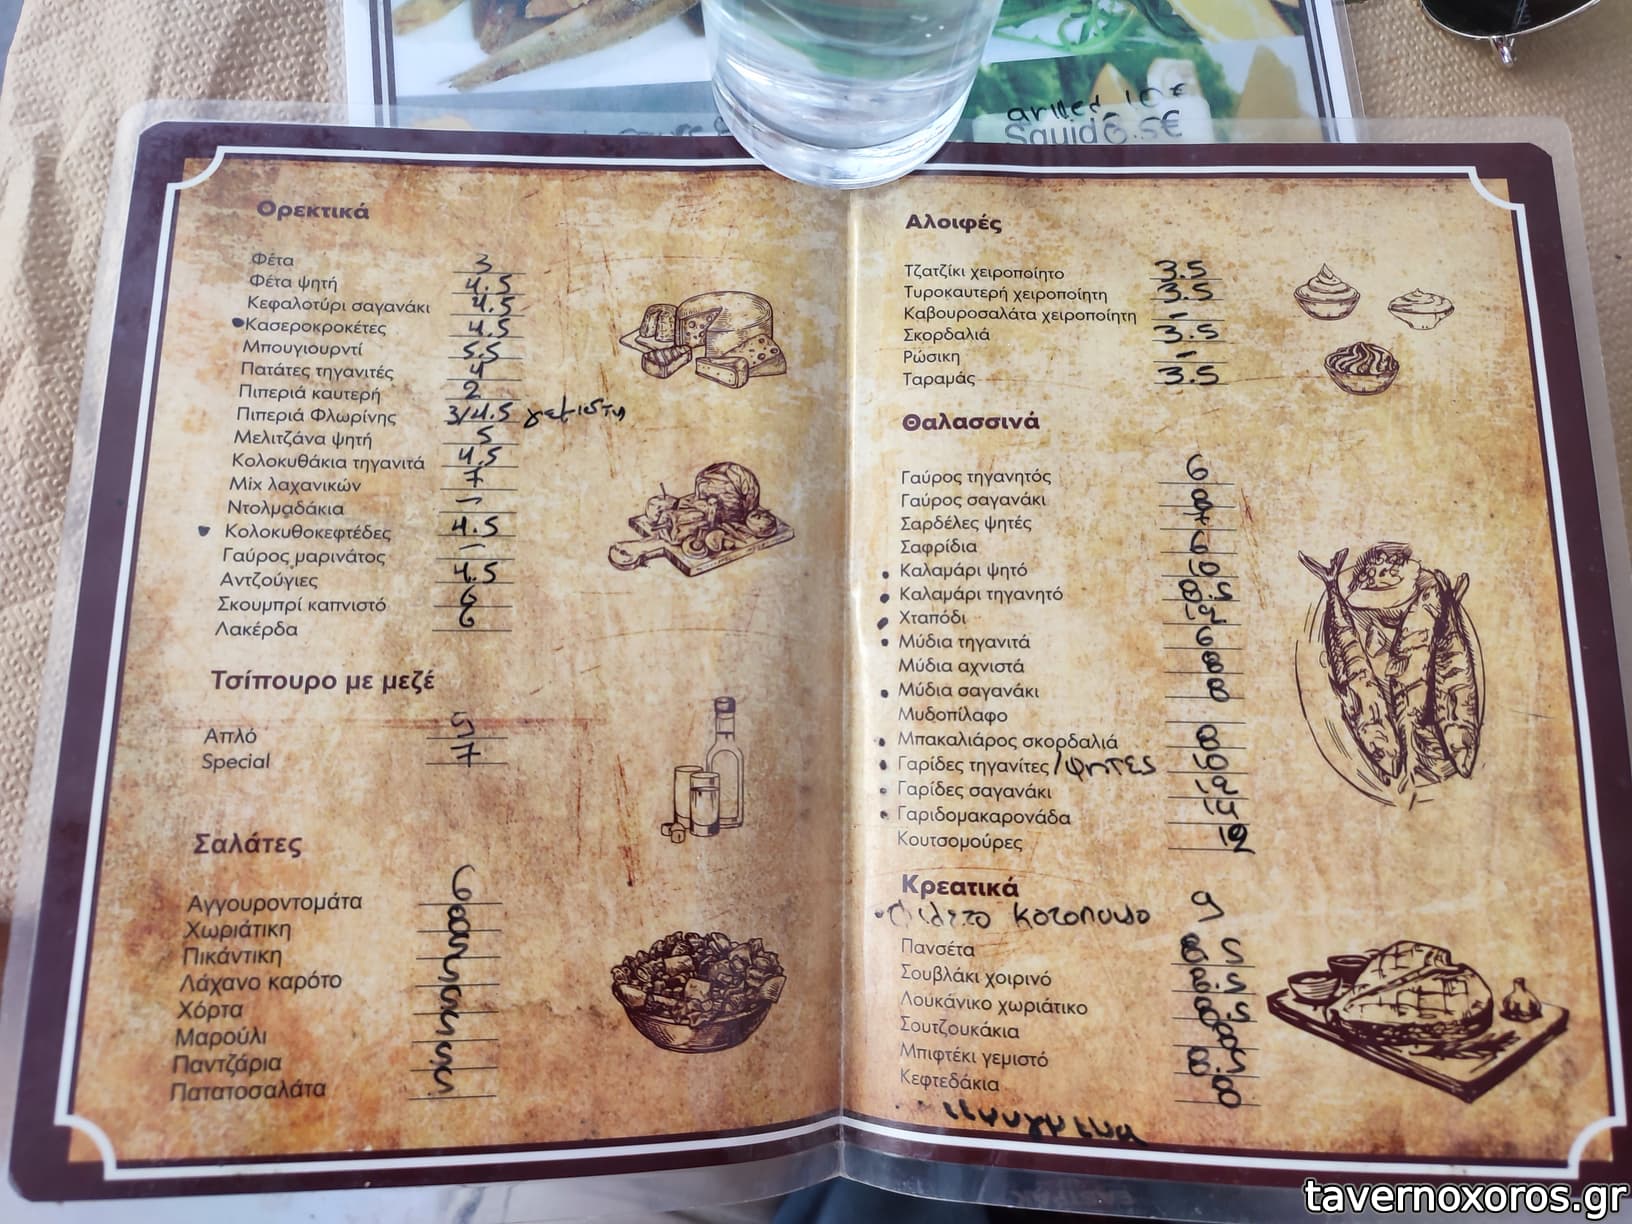 armed 10€
Squid 8.5€
Ορεκτικά
Φέτα 3
Φέτα ψητή 4.5
Κεφαλοτύρι σαγανάκι 4.5
Κασεροκροκέτες 4.5
Μπουγιουρντί 5.5
Πατάτες τηγανιτές 4
Πιπεριά καυτερή 2
Πιπεριά Φλωρίνης 3/4.5 γεμιστη
Μελιτζάνα ψητή 5
Κολοκυθάκια τηγανιτά 4.5
Mix λαχανικών 7
Ντολμαδάκια -
Κολοκυθοκεφτέδες 4.5
Γαύρος μαρινάτος -
Αντζούγιες 4.5
Σκουμπρί καπνιστό 6
Λακέρδα
Τσίπουρο με μεζέ
Απλό 5
Special 7
Σαλάτες
Αγγουροντομάτα 6
Χωριάτικη 8
Πικάντικη
Λάχανο καρότο 5
Χόρτα 5
Μαρούλι 5
Παντζάρια 5
Πατατοσαλάτα 5
Αλοιφές
Τζατζίκι χειροποίητο 3.5
Τυροκαυτερή χειροποίητη 3.5
Καβουροσαλάτα χειροποίητη -
Σκορδαλιά 3.5
Ρώσικη -
Ταραμάς 3.5
Θαλασσινά
Γαύρος τηγανητός 6
Γαύρος σαγανάκι 8
Σαρδέλες ψητές 7
Σαφρίδια 6
Καλαμάρι ψητό 10
Καλαμάρι τηγανητό 8.5
Χταπόδι 12
Μύδια τηγανιτά 6
Μύδια αχνιστά 8
Μύδια σαγανάκι 8
Μυδοπίλαφο
Μπακαλιάρος σκορδαλιά 8
Γαρίδες τηγανίτες/ψητες 10
Γαρίδες σαγανάκι 12
Γαριδομακαρονάδα 14
Κουτσομούρες 12
Κρεατικά
Φιλετο κοτοπουλο 9
Πανσέτα 8.5
Σουβλάκι χοιρινό 8.5
Λουκάνικο χωριάτικο 8.5
Σουτζουκάκια 8
Μπιφτέκι γεμιστό 8.5
Κεφτεδάκια 8
tavernoxoros.gr